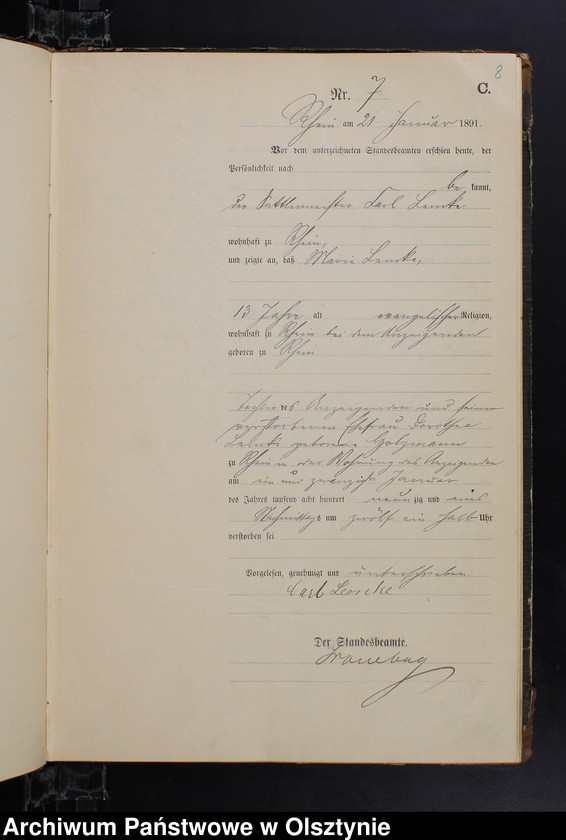 8
C.
Nr. 7
Rhein am 21. Januar 1891.
Vor dem unterzeichneten Standesbeamten erschien heute, der
Persönlichkeit nach
be kannt,
der Sattlermeister Carl Lemke
wohnhaft zu Rhein,
und zeigte an, daß Marie Lemke,
13 Jahre alt evangelischer Religion,
wohnhaft zu Rhein bei dem Anzeigenden
geboren zu Rhein
Tochter des Anzeigenden und seiner
verstorbenen Ehefrau Dorothea
Lemke geborene
zu Rhein in der Wohnung des Anzeigenden
am ein und zwanzigsten Januar
des Jahres tausend acht hundert neunzig und eins
Nachmittags um zwölf ein halb Uhr
verstorben sei
Vorgelesen, genehmigt und unterschrieben
Carl Lemcke
Der Standesbeamte.
Archiwum Państwowe w Olsztynie